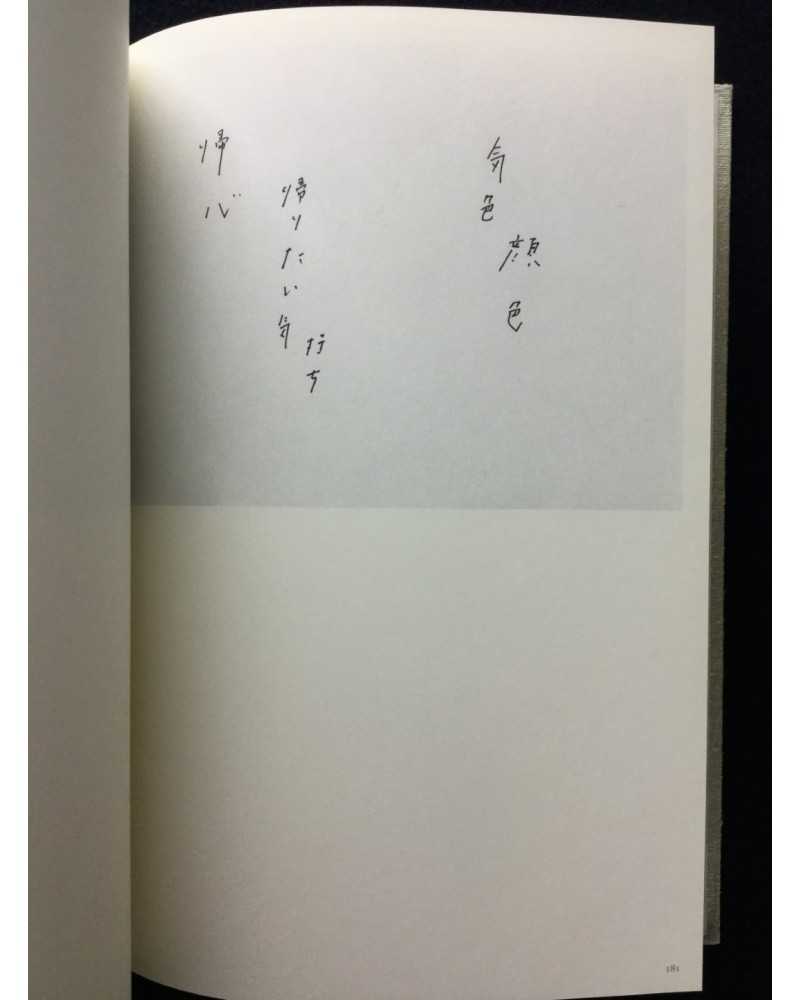 気色顔色
帰りたい気持ち
帰心
181